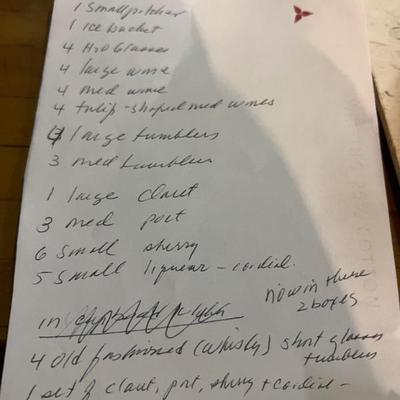 1 small pitcher
1 ice bucket
4 H2O Glasses
4 large wine
4 med wine
4 tulip-shaped med wines
4 large tumblers
3 med tumblers
1 large claret
3 med port
6 small sherry
5 small liqueur - cordial.
now in these
2 boxes
in
4 Old fashioned (whisky) short glasses
tumblers
1 set of claret, port, sherry + cordial -